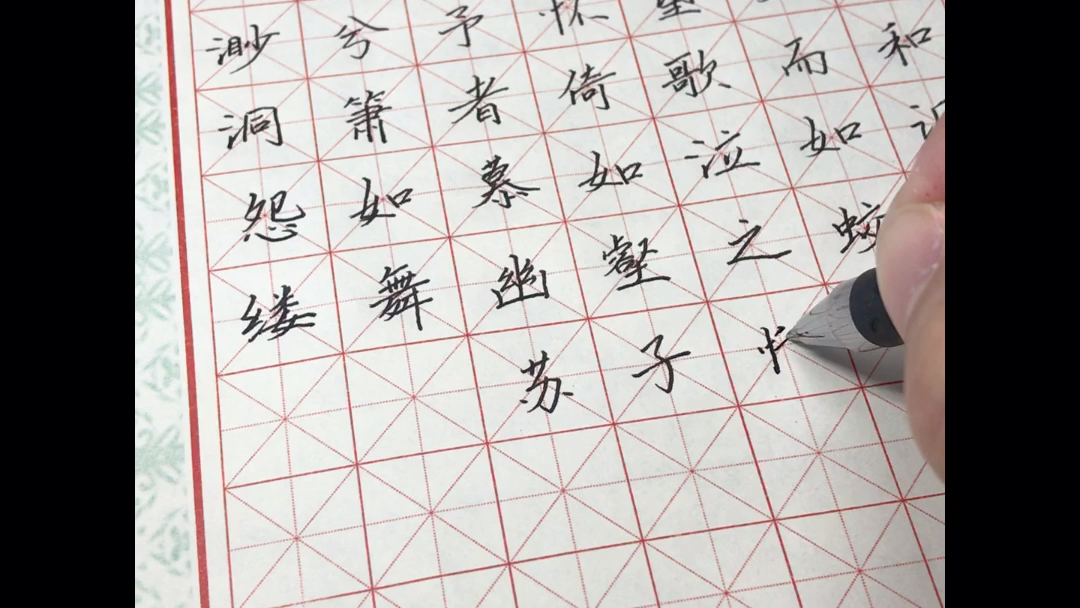 渺兮予怀望
洞箫者倚歌而和
怨如慕如泣如
缕舞幽壑之蛟
苏子